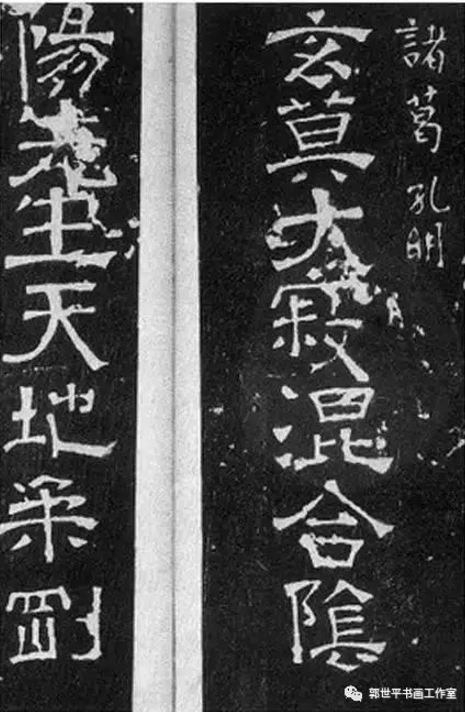 諸葛孔明
玄莫大寂混合陰
陽生天地柔剛
郭世平书画工作室